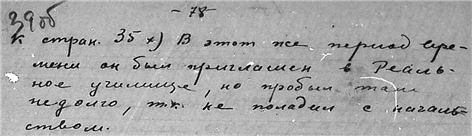 39об
- 78
к стран. 35 х) В этот же период вре-
мени он был приглашен в Реаль-
ное училище, но пробыл там
недолго, т.к. не поладил с началь-
ством.